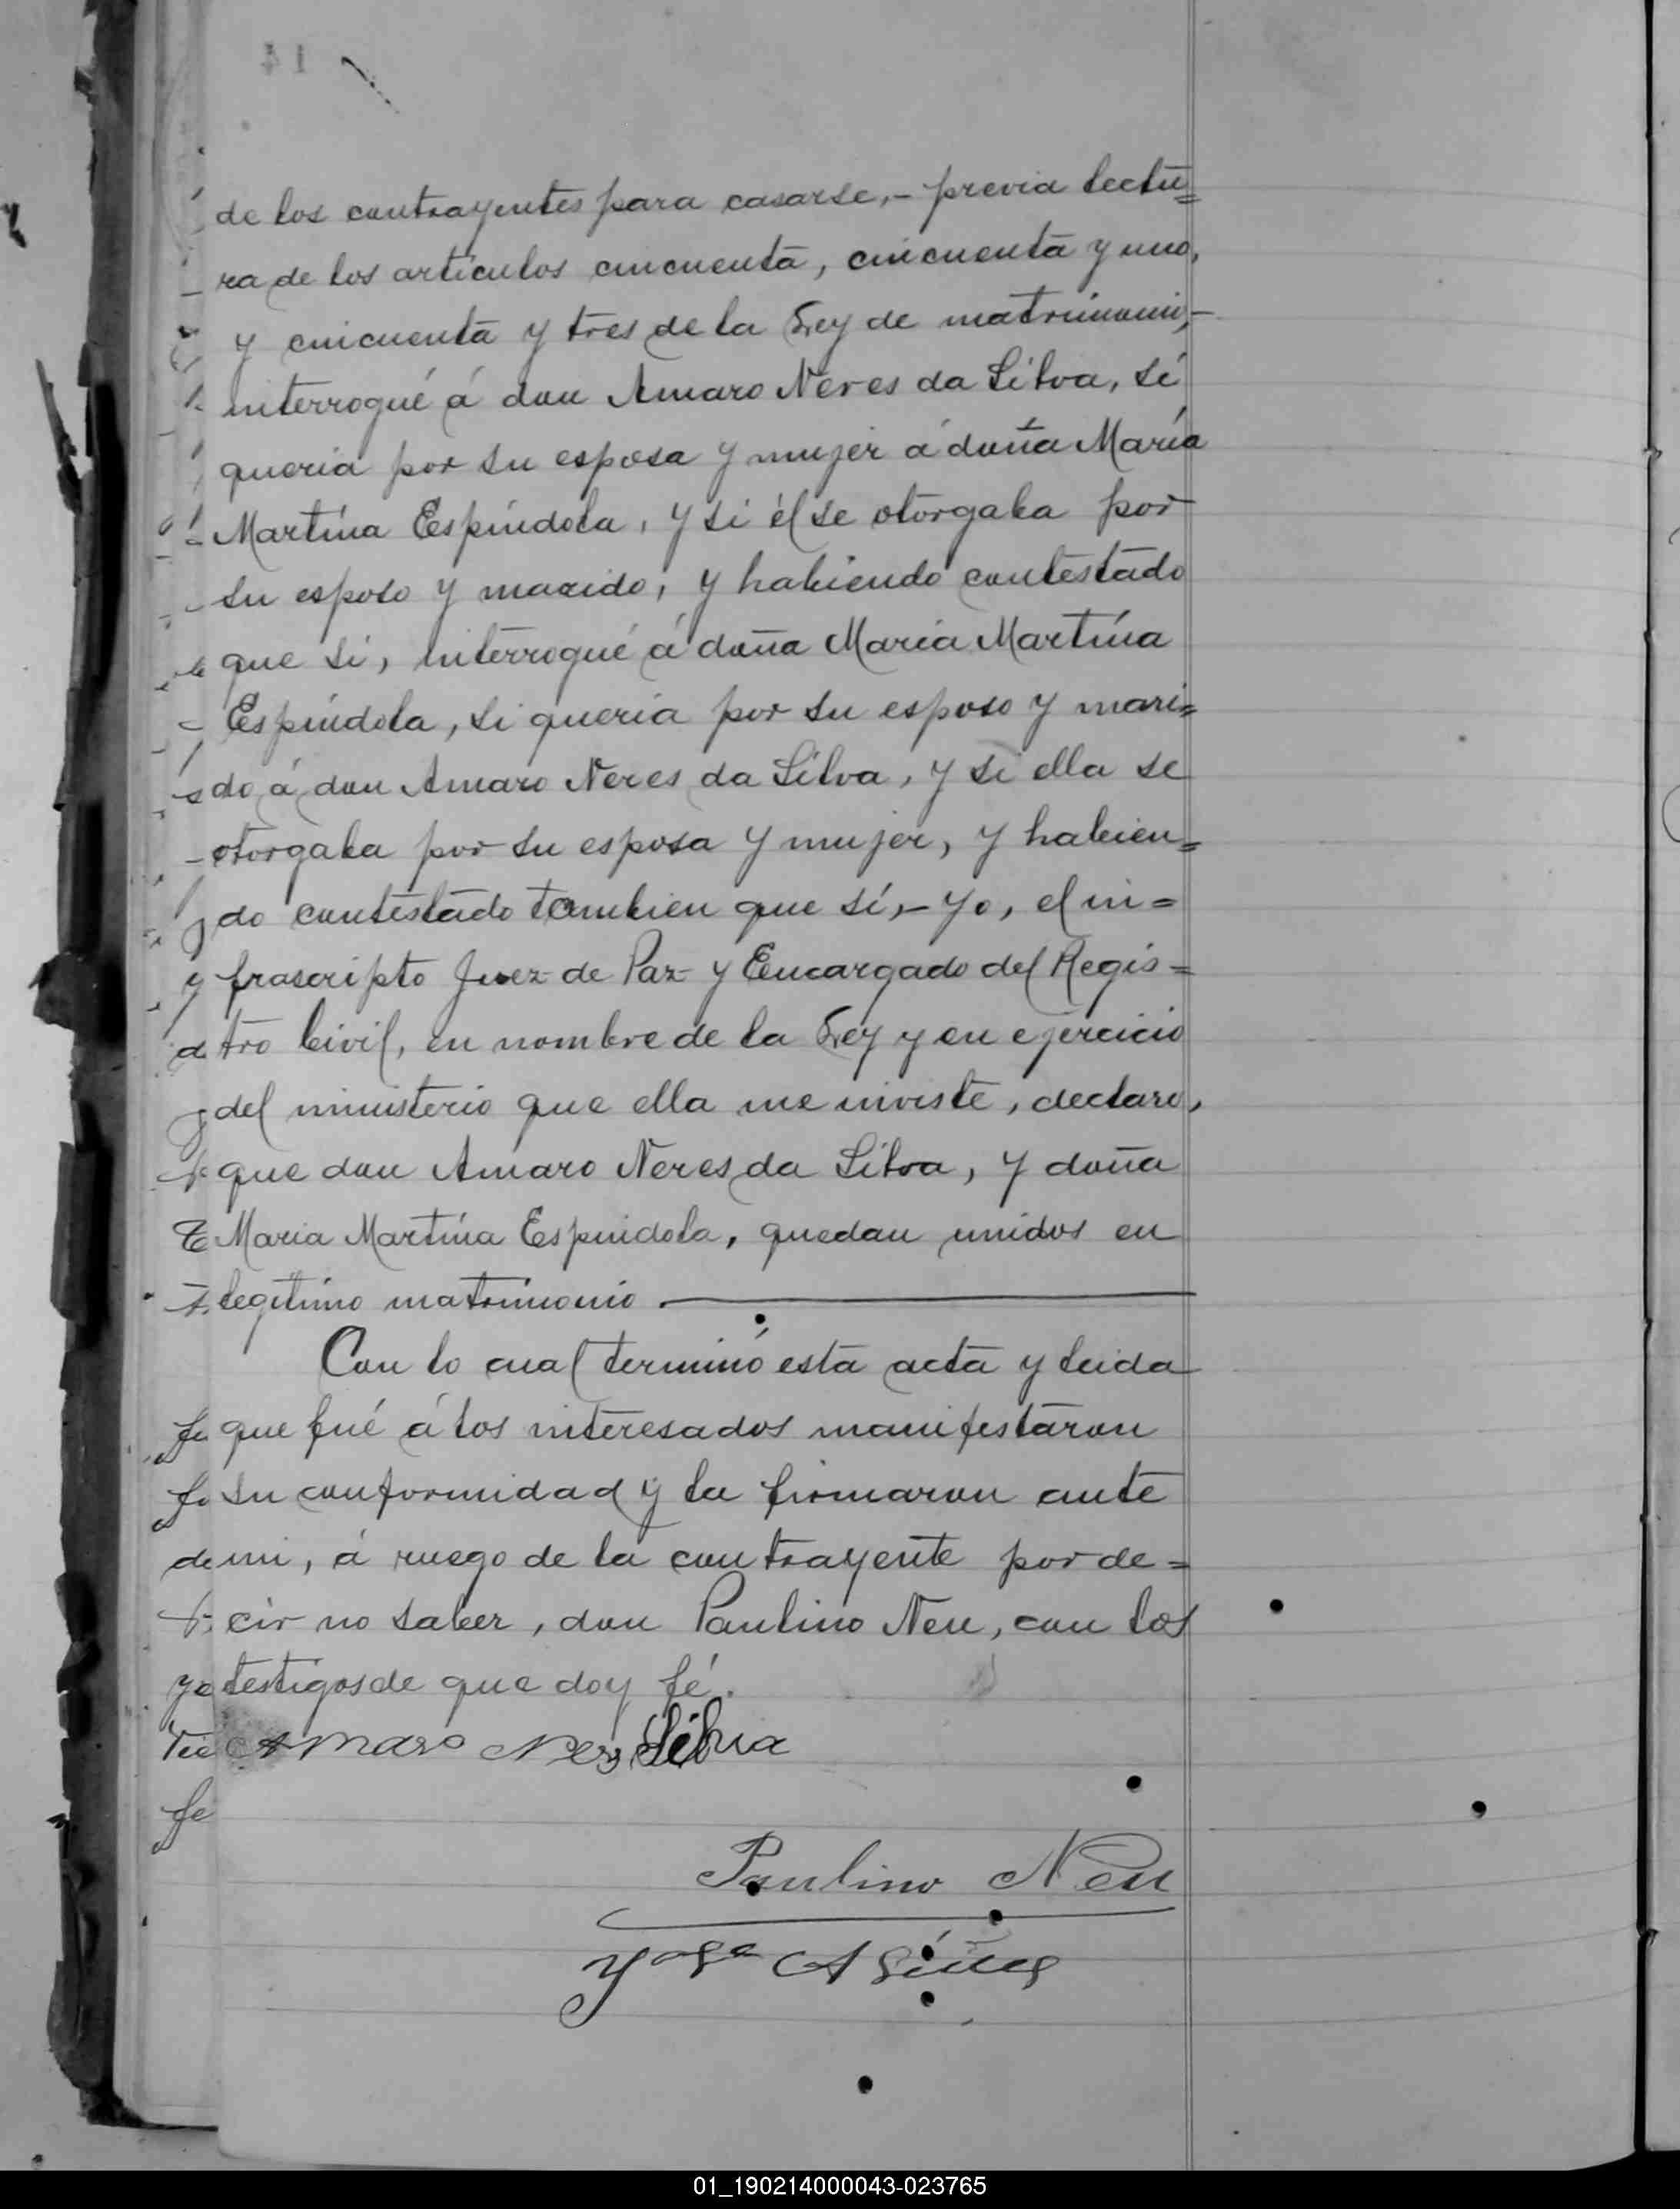 14
de los contrayentes para casarse,- previa lectu=
ra de los artículos cincuenta, cincuenta y uno,
y cincuenta y tres de la Ley de matrimonio,-
interrogué á don Amaro Neres da Silva, sí
queria por su esposa y mujer á doña María
Martína Espíndola, y si él se otorgaba por
su esposo y marido, y habiendo contestado
que si, interrogué á doña María Martína
Espíndola, si queria por su esposo y mari=
do á don Amaro Neres da Silva, y si ella se
otorgaba por su esposa y mujer, y habien=
do contestado tambien que sí,- yo, el in=
frascripto Juez de Paz y Encargado del Regis=
tro Civil, en nombre de la Ley y en ejercicio
del ministerio que ella me inviste, declaro,
que don Amaro Neres da Silva, y doña
Maria Martína Espindola, quedan unidos en
legítimo matrimonio
Con lo cual terminó esta acta y leida
que fué á los interesados manifestaron
su conformidad y la firmaron ante
mi, á ruego de la contrayente por de=
cir no saber, don Paulino Neu, con los
testigos de que doy fé.
Amaro Neres Silvia
Paulino Neu
01_190214000043-023765